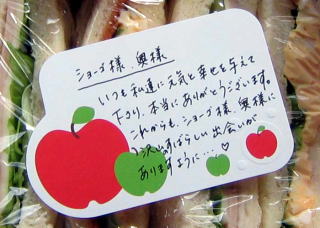 ショーゴ様 奥様
いつも私達に元気と幸せを与えて
下さり、本当にありがとうございます。
これからも、ショーゴ様 奥様に
沢山のすばらしい出会いが
ありますように…♡